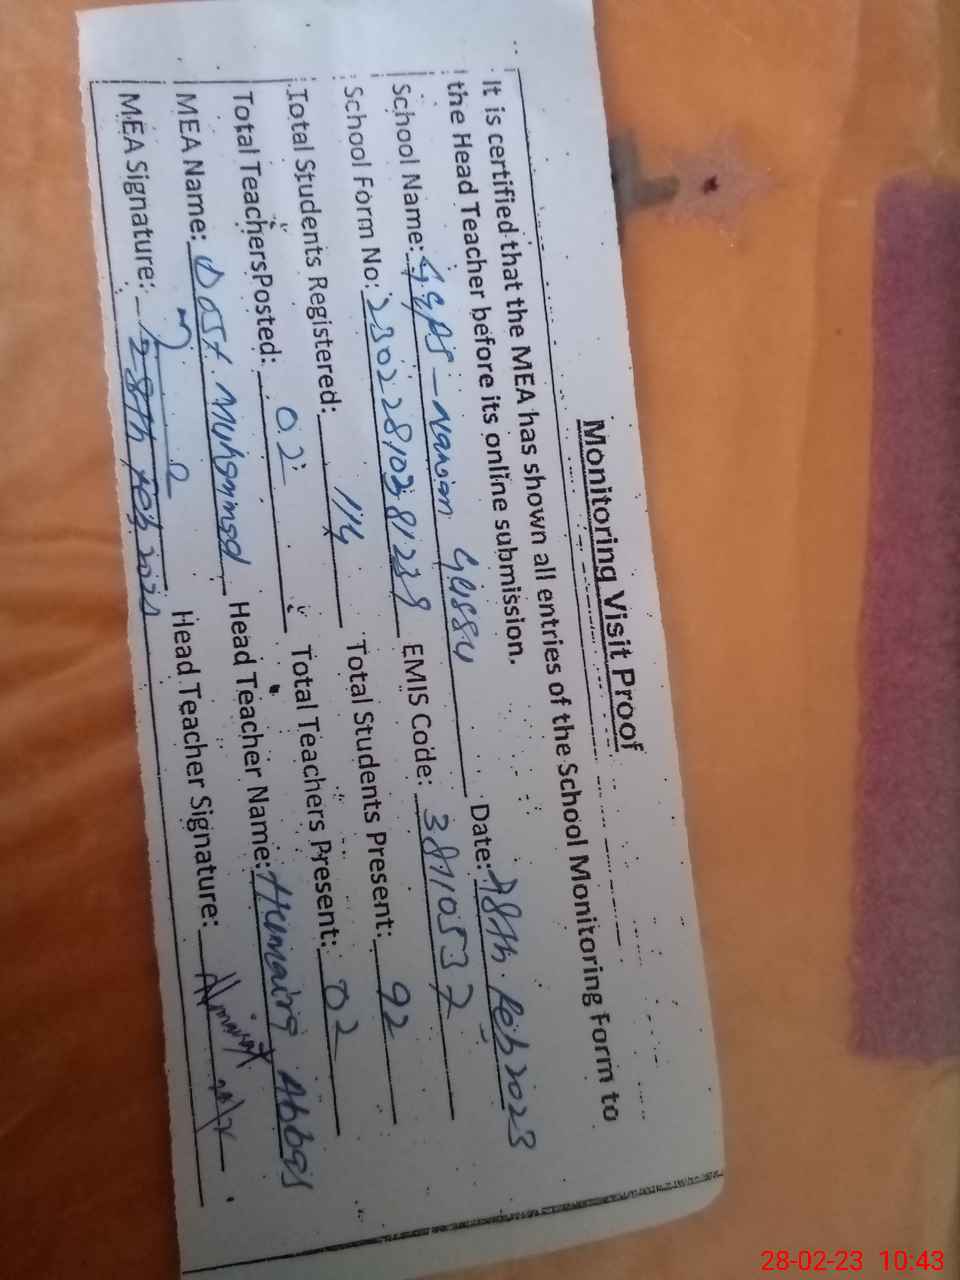 Monitoring Visit Proof
It is certified that the MEA has shown all entries of the School Monitoring Form to
the Head Teacher before its online submission.
School Name: GGPS - Date: 28th Feb 2023
School Form No: EMIS Code: 38710537
Total Students Registered: 114 Total Students Present: 92
Total Teachers Posted: 02 Total Teachers Present: 02
MEA Name: Dost Muhammad Head Teacher Name: Humaira Abbas
MEA Signature: 28th Feb Head Teacher Signature:
28-02-23 10:43